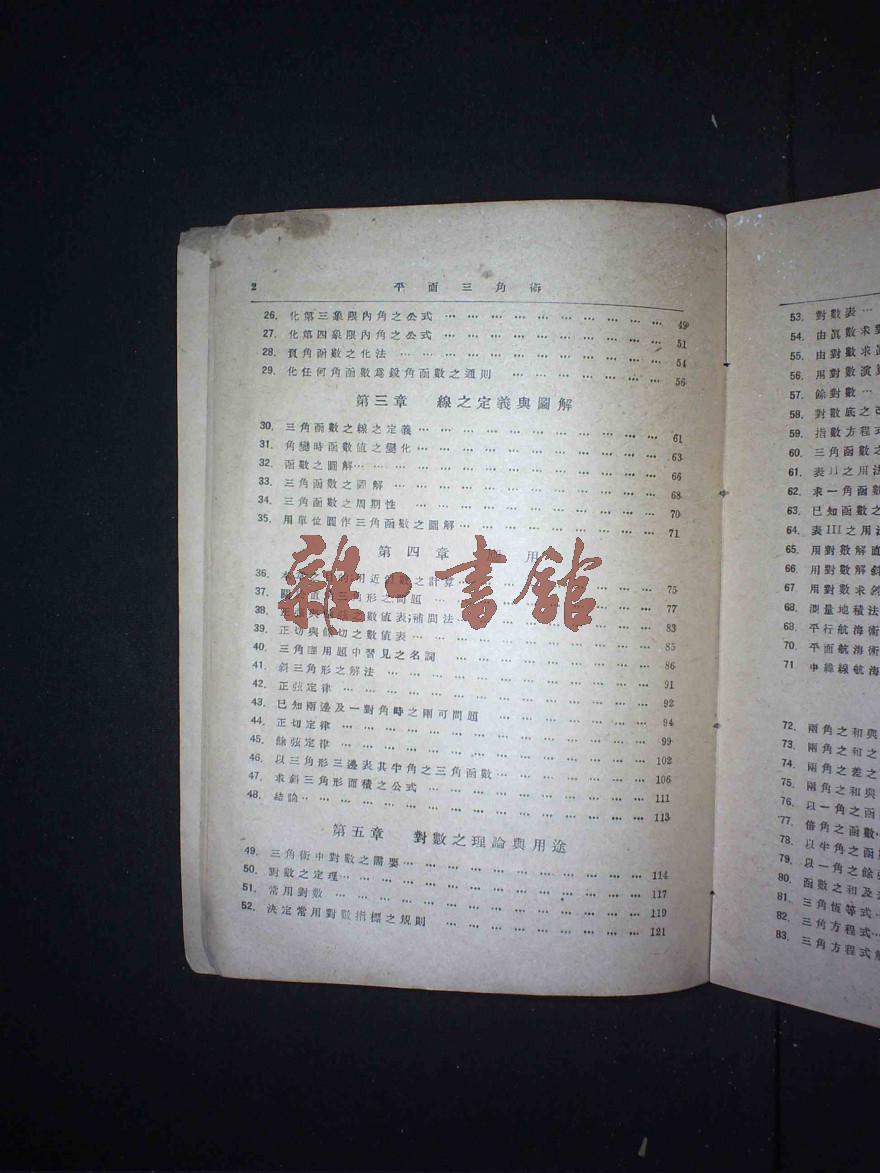 2 平面三角術
26. 化第三象限內角之公式 … … … … … … … … … … 49
27. 化第四象限內角之公式 … … … … … … … … … … 51
28. 負角函數之化法 … … … … … … … … … … … 54
29. 化任何角函數爲銳角函數之通則 … … … … … … … 56
第三章 線之定義與圖解
30. 三角函數之線之定義 … … … … … … … … … … 61
31. 角變時函數值之變化 … … … … … … … … … … 63
32. 函數之圖解 … … … … … … … … … … … … 66
33. 三角函數之圖解 … … … … … … … … … … … 68
34. 三角函數之周期性 … … … … … … … … … … 70
35. 用單位圓作三角函數之圖解 … … … … … … … … 71
第四章 用
36. 近 數之計算 … … … … … … … … 75
37. 關 直 三角形之問題 … … … … … … … … 77
38. 正弦與 弦之數值表;補間法 … … … … … … … 83
39. 正切與餘切之數值表 … … … … … … … … … 85
40. 三角應用題中習見之名詞 … … … … … … … … 86
41. 斜三角形之解法 … … … … … … … … … … … 91
42. 正弦定律 … … … … … … … … … … … … 92
43. 已知兩邊及一對角時之兩可問題 … … … … … … … 94
44. 正切定律 … … … … … … … … … … … … 99
45. 餘弦定律 … … … … … … … … … … … … 102
46. 以三角形三邊表其半角之三角函數 … … … … … … 106
47. 求斜三角形面積之公式 … … … … … … … … … 111
48. 結論 … … … … … … … … … … … … … 113
第五章 對數之理論與用途
49. 三角術中對數之需要 … … … … … … … … … 114
50. 對數之定理 … … … … … … … … … … … 117
51. 常用對數 … … … … … … … … … … … … 119
52. 決定常用對數指標之規則 … … … … … … … … 121
雜·書館
53. 對數表 …
54. 由眞數求對
55. 由對數求眞
56. 用對數演算
57. 餘對數 …
58. 對數底之
59. 指數方程式
60. 三角函數之
61. 表II之用法
62. 求一角函數
63. 已知函數之
64. 表III之用法
65. 用對數解直
66. 用對數解斜
67. 用對數求
68. 測量地積法
68. 平行航海術
70. 平面航海術
71 中緯線航海
72. 兩角之和與
73. 兩角之和之
74. 兩角之差之
75. 兩角之和與
76. 以一角之函
77. 倍角之函數
78. 以半角之函
79. 以一角之餘
80. 函數之和及
81. 三角恆等式
82. 三角方程式
83. 三角方程式